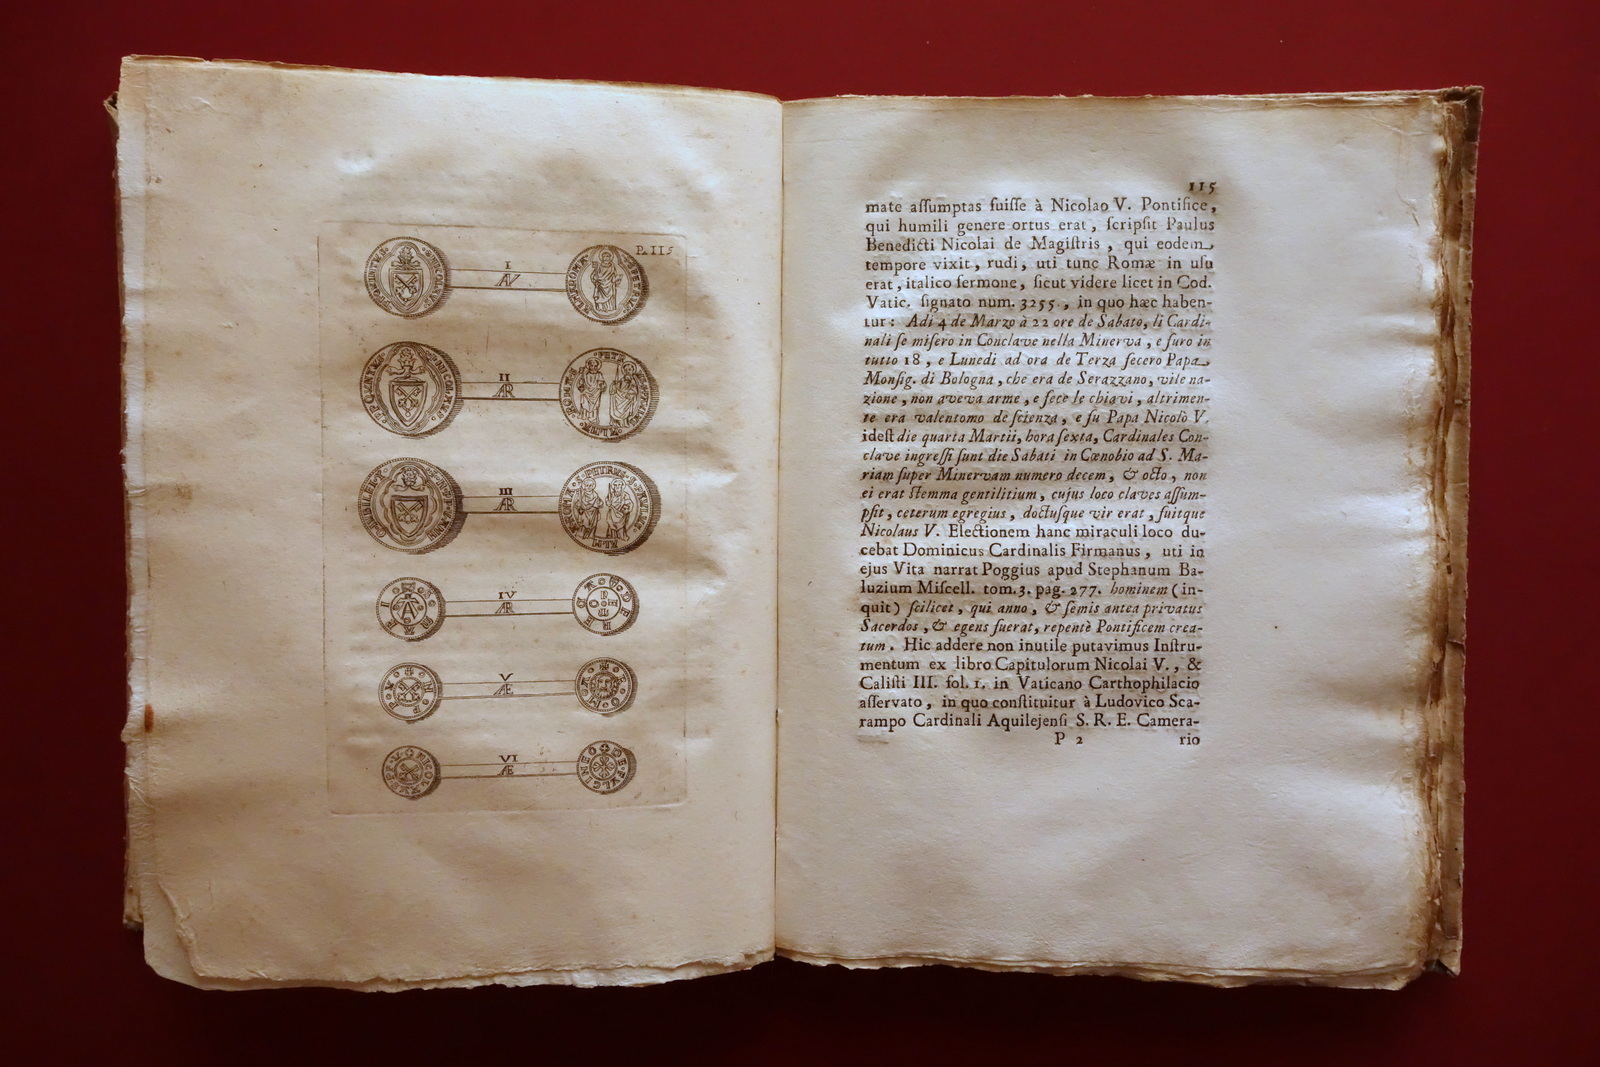 P. 115
I
AV
II
AR
III
AR
IV
AR
V
Æ
VI
Æ
115
mate aſſumptas fuiſſe à Nicolao V. Pontifice,
qui humili genere ortus erat, ſcripſit Paulus
Benedicti Nicolai de Magiſtris, qui eodem
tempore vixit, rudi, uti tunc Romæ in uſu
erat, italico ſermone, ſicut videre licet in Cod.
Vatic. ſignato num. 3255., in quo hæc haben-
tur: Adi 4 de Marzo à 22 ore de Sabato, li Cardi-
nali ſe miſero in Conclave nella Minerva, e furo in
tutto 18, e Lunedi ad ora de Terza fecero Papa
Monſig. di Bologna, che era de Serazzano, vile na-
zione, non aveva arme, e fece le chiavi, altrimen-
te era valentomo de ſcienza, e fu Papa Nicolò V.
ideſt die quarta Martii, hora ſexta, Cardinales Con-
clave ingreſſi ſunt die Sabati in Cœnobio ad S. Ma-
riam ſuper Minervam numero decem, & octo, non
ei erat ſtemma gentilitium, cujus loco claves aſſum-
pſit, ceterum egregius, doctuſque vir erat, fuitque
Nicolaus V. Electionem hanc miraculi loco du-
cebat Dominicus Cardinalis Firmanus, uti in
ejus Vita narrat Poggius apud Stephanum Ba-
luzium Miſcell. tom. 3. pag. 277. hominem (in-
quit) ſcilicet, qui anno, & ſemis antea privatus
Sacerdos, & egens fuerat, repentè Pontificem crea-
tum. Hic addere non inutile putavimus Inſtru-
mentum ex libro Capitulorum Nicolai V., &
Caliſti III. fol. 1. in Vaticano Carthophilacio
aſſervato, in quo conſtituitur à Ludovico Sca-
rampo Cardinali Aquilejenſi S. R. E. Camera-
P 2 rio